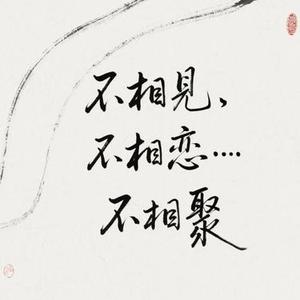 不相見，
不相恋····
不相聚